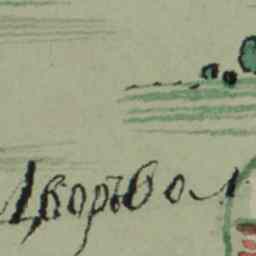 Дворъбол